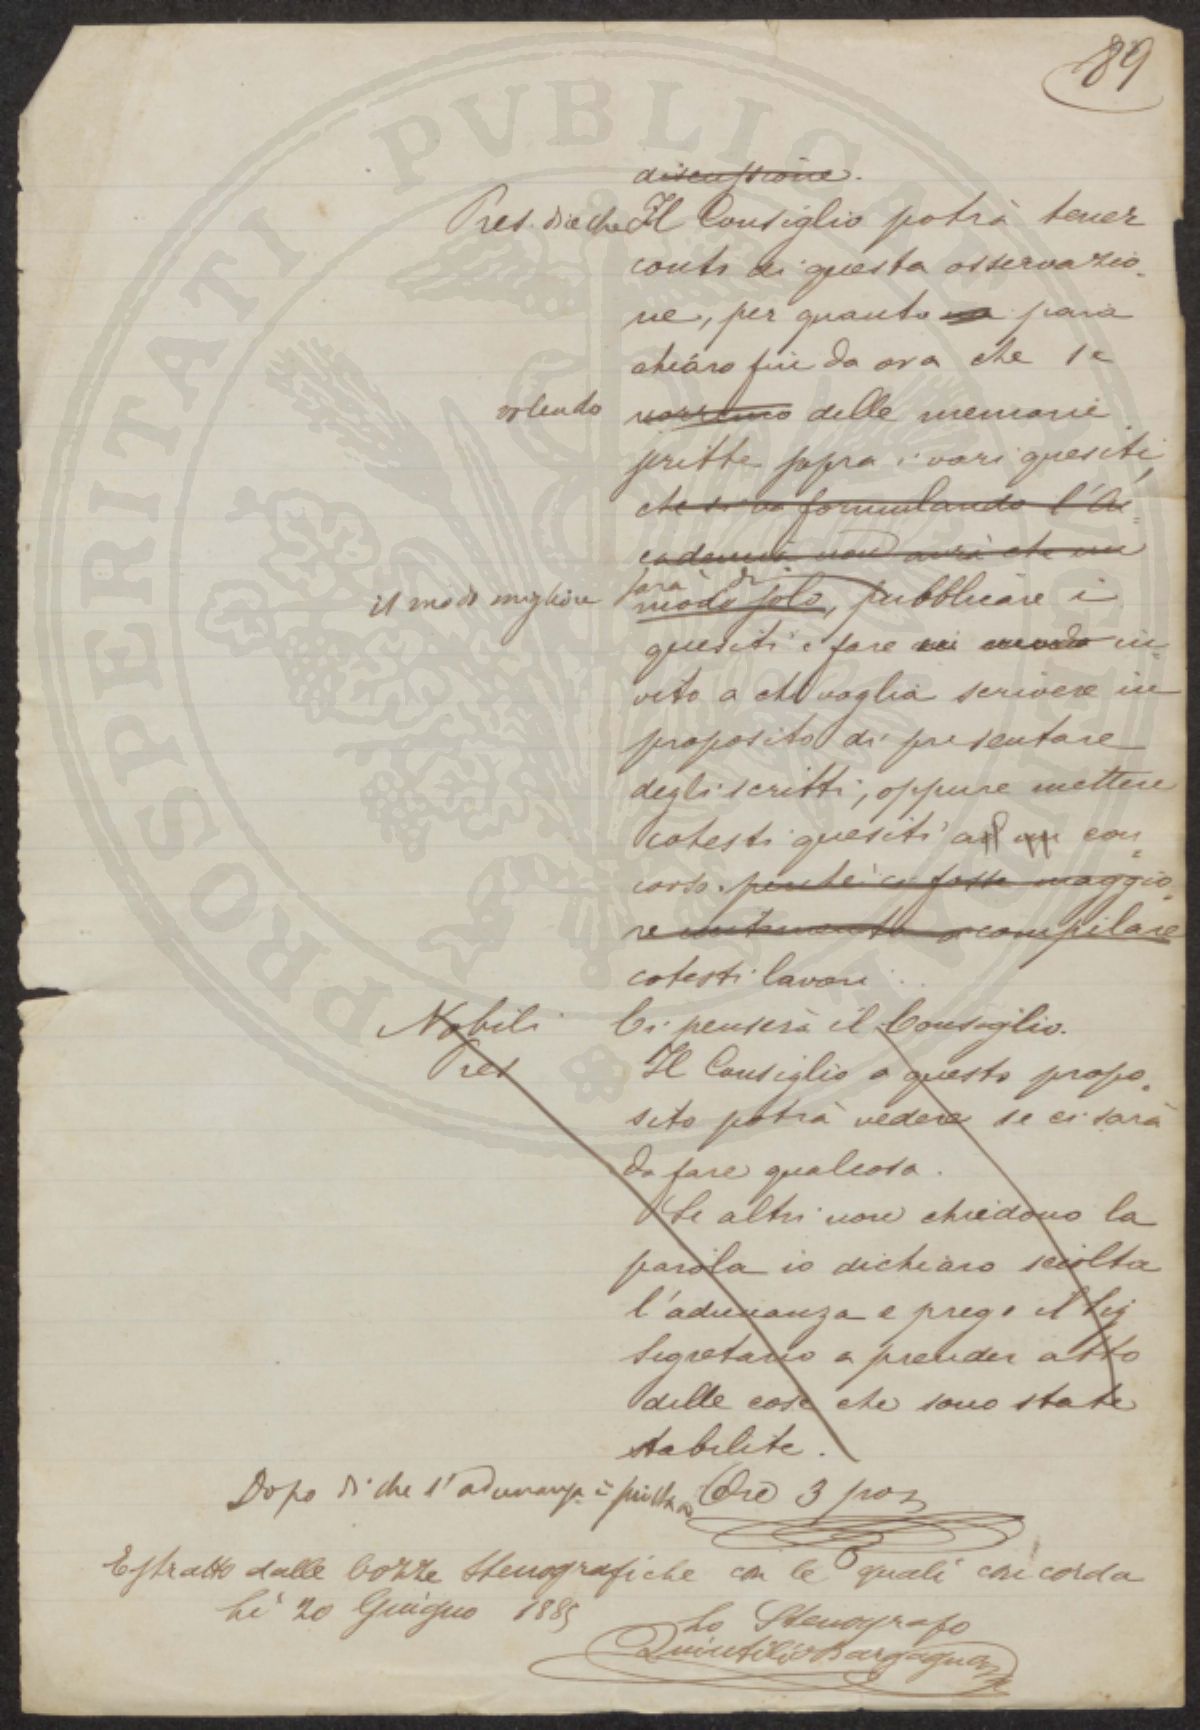 89
discussione.
Pres. dice che Il Consiglio potrà tener
conto di questa osservazio-
ne, per quanto para
chiaro fin da ora che se
volendo vorremo delle memorie
scritte sopra i vari quesiti,
che si va formulando l'Ac=
cademia non avrà che un
sarà di
il modo migliore modo solo, pubblicare i
quesiti e fare in modo in-
vito a chi voglia scrivere in
proposito di presentare
degli scritti, oppure mettere
cotesti quesiti ad un con=
corso. perchè ci fosse maggio-
re a compilare
cotesti lavori.
Nobili Ci penserà il Consiglio.
Pres Il Consiglio a questo propo-
sito potrà vedere se ci sarà
da fare qualcosa.
Se altri non chiedono la
parola io dichiaro sciolta
l'adunanza e prego il Sig
Segretario a prender atto
delle cose che sono state
stabilite.
Dopo di che l'adunanza è sciolta Ore 3 poz
Estratto dalle bozze stenografiche con le quali concorda
Li 20 Giugno 1885
Lo Stenografo
Quintilio Bargagna
PROSPERITATI PVBLICAE